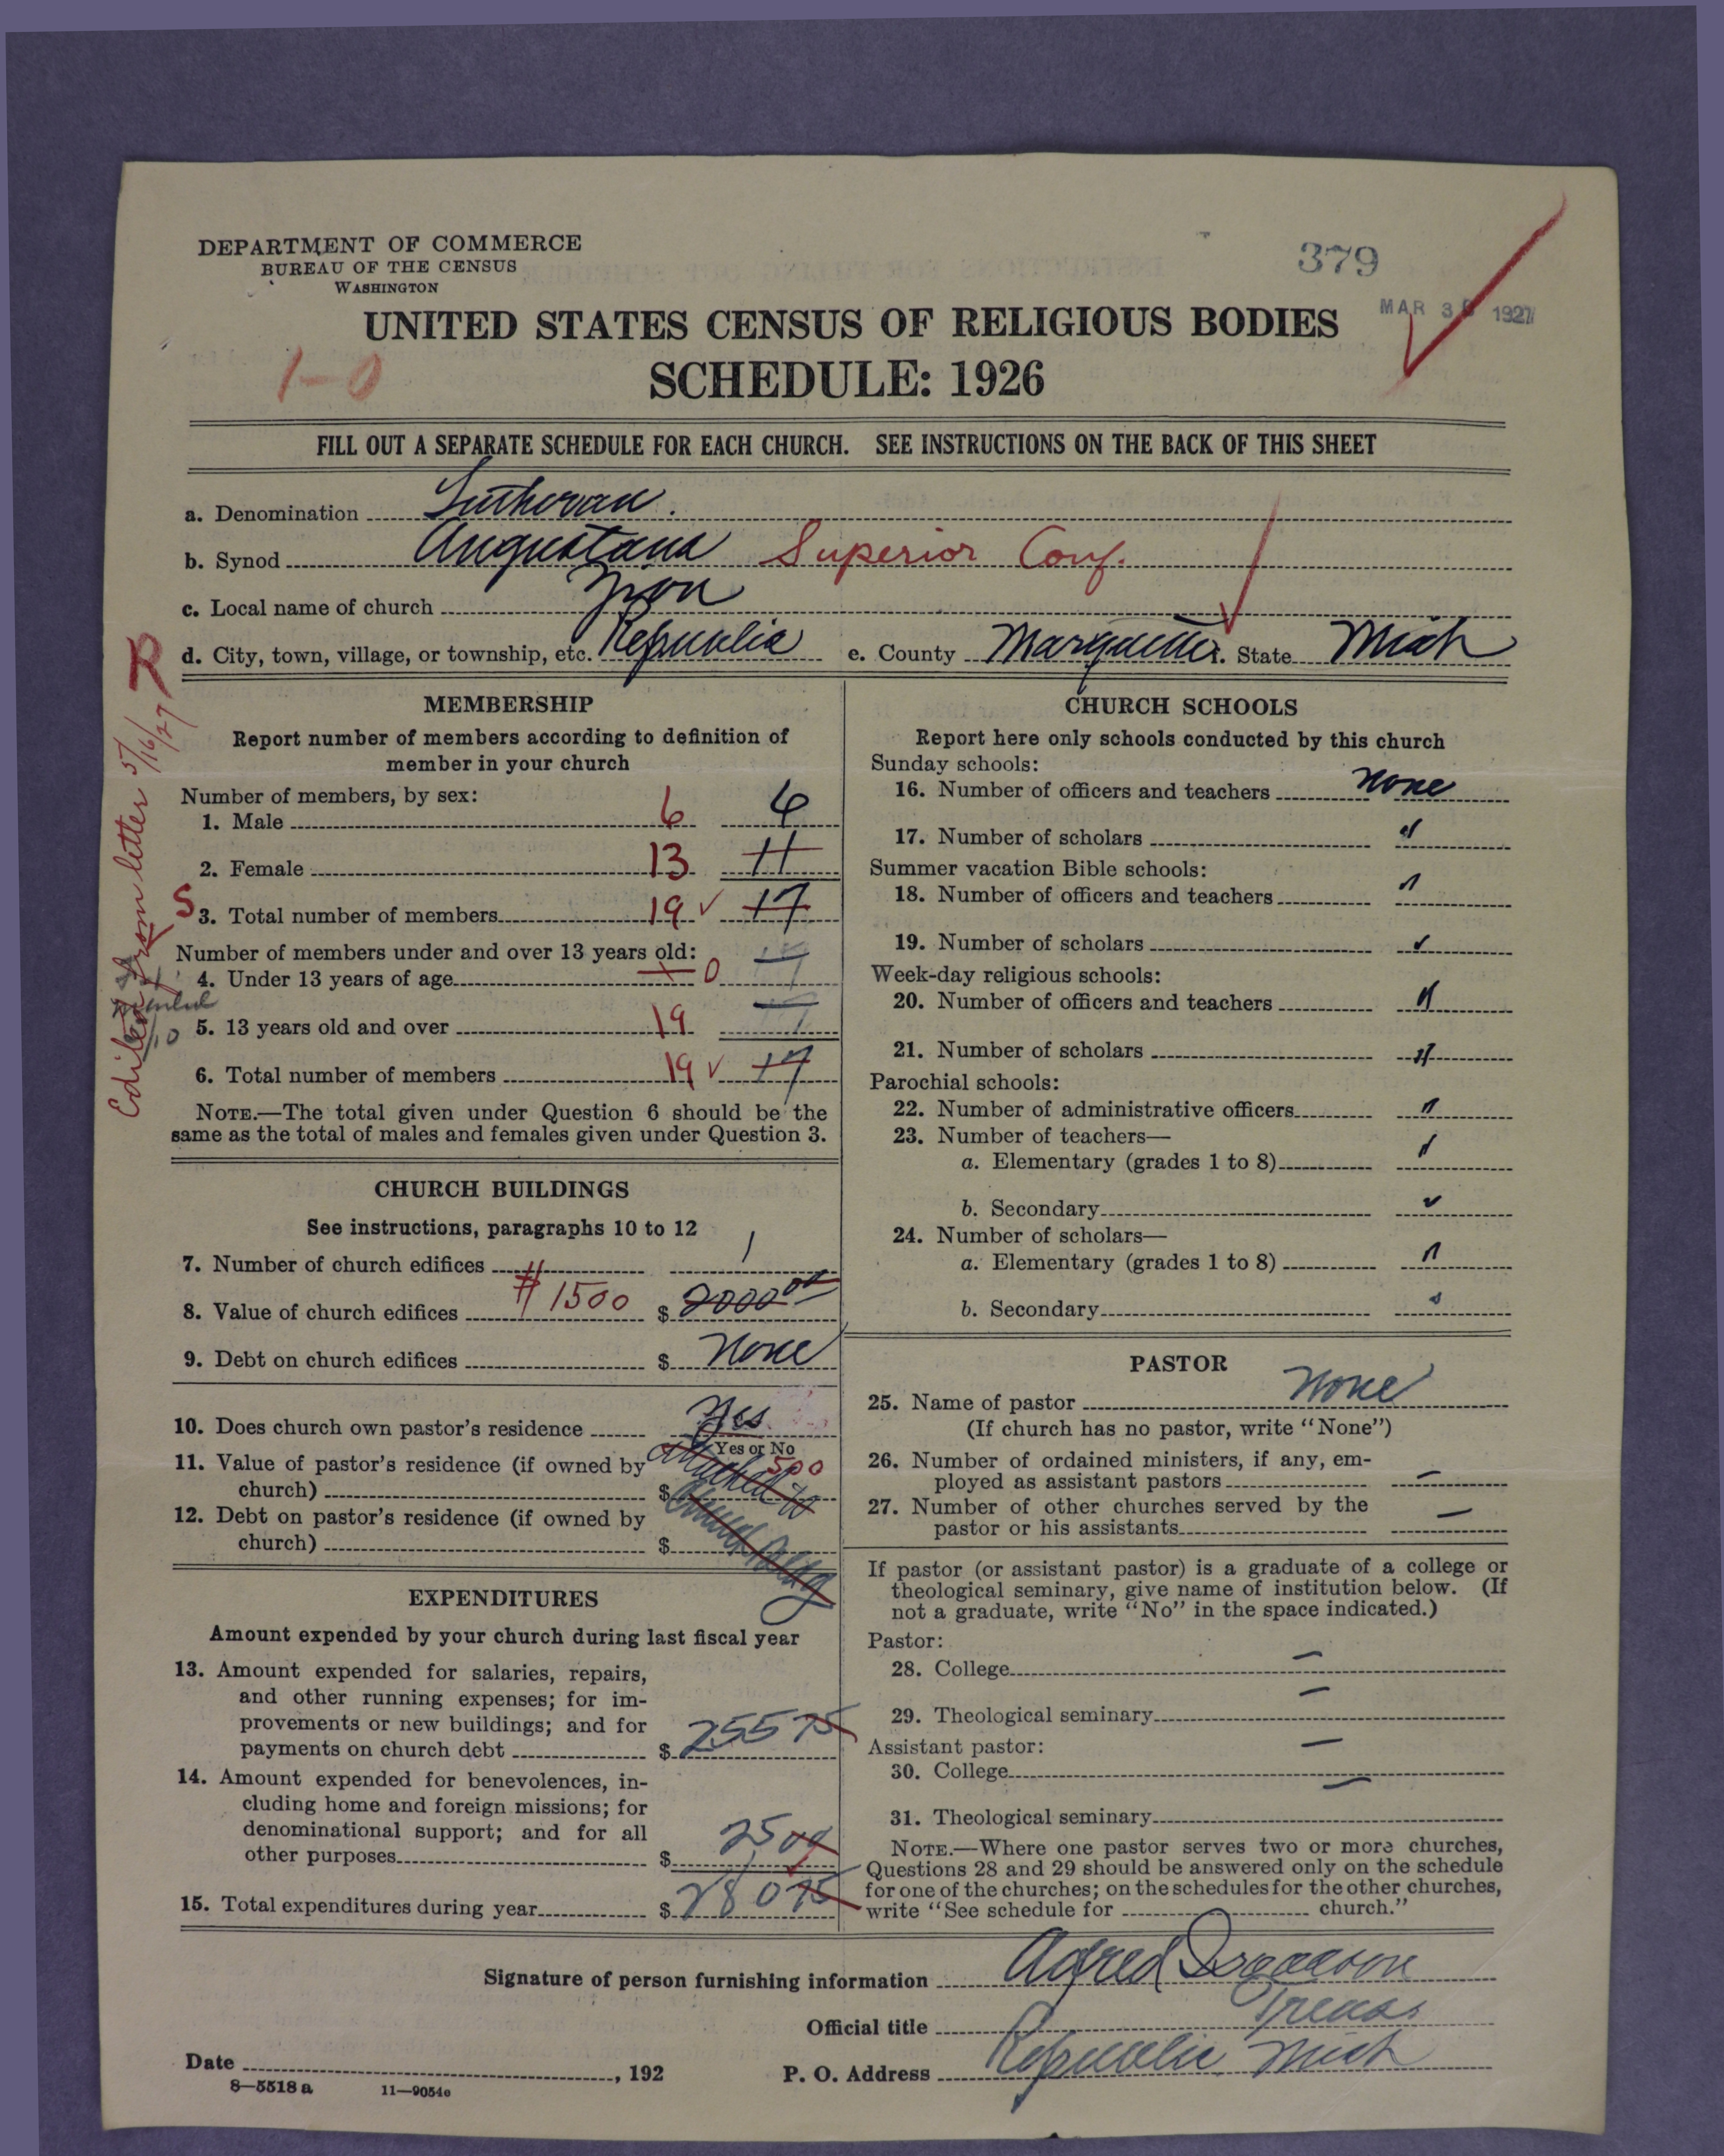 DEPARTMENT OF COMMERCE
BUREAU OF THE CENSUS
WASHINGTON
379
MAR 30 1927
UNITED STATES CENSUS OF RELIGIOUS BODIES
SCHEDULE: 1926
1-0
FILL OUT A SEPARATE SCHEDULE FOR EACH CHURCH. SEE INSTRUCTIONS ON THE BACK OF THIS SHEET
a. Denomination Lutheran.
b. Synod Augustana Superior Conf.
c. Local name of church Zion
d. City, town, village, or township, etc. Republic e. County Marquette f. State Mich
R
from letter 5/16/27
MEMBERSHIP
Report number of members according to definition of
member in your church
Number of members, by sex:
1. Male 6 6
2. Female 13 11
S 3. Total number of members 19 ✓ 17
Number of members under and over 13 years old:
4. Under 13 years of age 0
5. 13 years old and over 19
6. Total number of members 19 ✓ 17
NOTE.—The total given under Question 6 should be the
same as the total of males and females given under Question 3.
CHURCH BUILDINGS
See instructions, paragraphs 10 to 12
7. Number of church edifices 1
8. Value of church edifices # 1500 $ 2000 00
9. Debt on church edifices $ None
10. Does church own pastor's residence Yes
Yes or No
11. Value of pastor's residence (if owned by
church) $ 500
Attached to
Church Bldg
12. Debt on pastor's residence (if owned by
church) $
EXPENDITURES
Amount expended by your church during last fiscal year
13. Amount expended for salaries, repairs,
and other running expenses; for im-
provements or new buildings; and for
payments on church debt $ 255 75
14. Amount expended for benevolences, in-
cluding home and foreign missions; for
denominational support; and for all
other purposes $ 25 00
15. Total expenditures during year $ 280 75
CHURCH SCHOOLS
Report here only schools conducted by this church
Sunday schools:
16. Number of officers and teachers None
17. Number of scholars "
Summer vacation Bible schools:
18. Number of officers and teachers "
19. Number of scholars "
Week-day religious schools:
20. Number of officers and teachers "
21. Number of scholars "
Parochial schools:
22. Number of administrative officers "
23. Number of teachers—
a. Elementary (grades 1 to 8) "
b. Secondary "
24. Number of scholars—
a. Elementary (grades 1 to 8) "
b. Secondary "
PASTOR
25. Name of pastor None
(If church has no pastor, write "None")
26. Number of ordained ministers, if any, em-
ployed as assistant pastors —
27. Number of other churches served by the
pastor or his assistants —
If pastor (or assistant pastor) is a graduate of a college or
theological seminary, give name of institution below. (If
not a graduate, write "No" in the space indicated.)
Pastor:
28. College —
29. Theological seminary —
Assistant pastor:
30. College —
31. Theological seminary —
NOTE.—Where one pastor serves two or more churches,
Questions 28 and 29 should be answered only on the schedule
for one of the churches; on the schedules for the other churches,
write "See schedule for church."
Signature of person furnishing information Alfred Isaacson
Official title Treas.
Date , 192 P. O. Address Republic Mich
8—5518 a 11—9054e